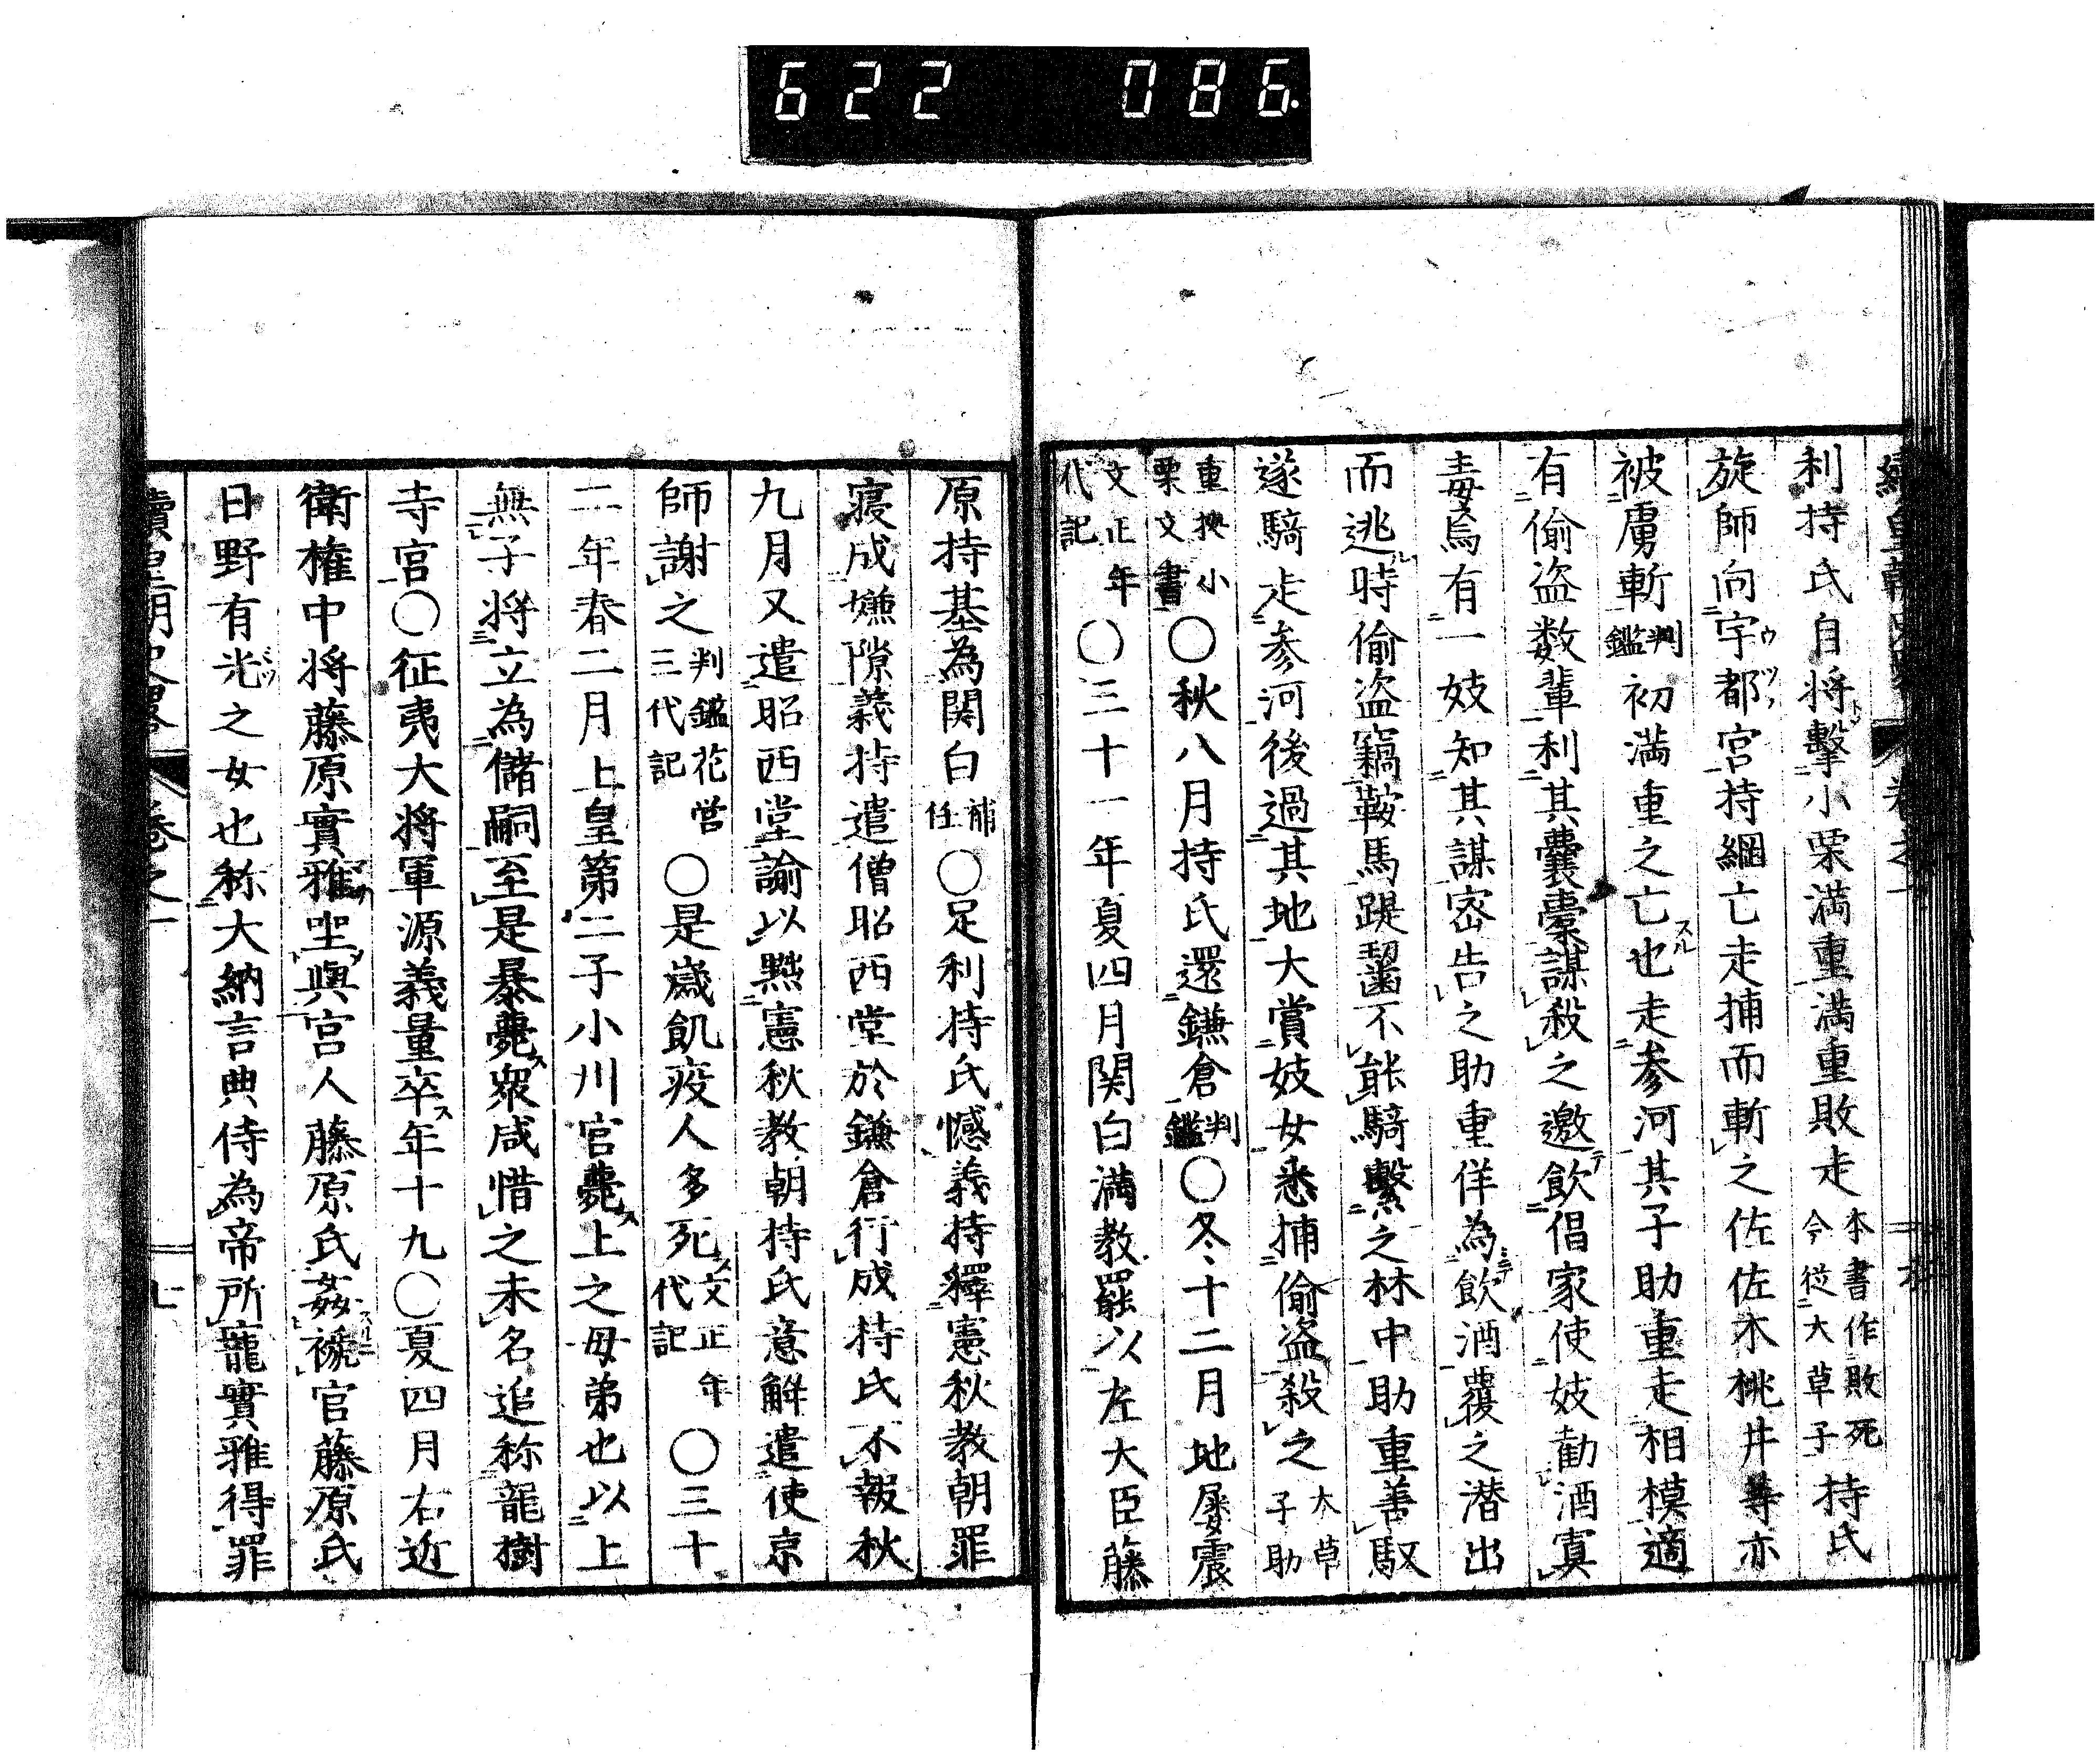 622 086.
利持氏自将撃小栗満重満重敗走本書作敗死今従大草子持氏
旋師向宇都宮持綱亡走捕而斬之佐佐木桃井等亦
被虜斬判鑑初満重之亡也走参河其子助重走相模適
有偷盗数輩利其嚢橐謀殺之邀飲倡家使妓勧酒寘
毒焉有一妓知其謀密告之助重佯為飲酒覆之潜出
而逃時偷盗竊鞍馬踶齧不能騎繫之林中助重善馭
遂騎走参河後過其地大賞妓女悉捕偷盗殺之大草子助
重拠小栗文書〇秋八月持氏還鎌倉判鑑〇冬十二月地屡震
文正年代記〇三十一年夏四月関白満教罷以左大臣藤
原持基為関白補任〇足利持氏憾義持釋憲秋教朝罪
寖成嫌隙義持遣僧昭西堂於鎌倉行成持氏不報秋
九月又遣昭西堂諭以黙憲秋教朝持氏意解遣使京
師謝之判鑑花営三代記〇是歳飢疫人多死文正年代記〇三十
二年春二月上皇第二子小川宮薨上之母弟也以上
無子将立為儲嗣至是暴薨衆咸惜之未名追称龍樹
寺宮〇征夷大将軍源義量卒年十九〇夏四月右近
衛権中将藤原實雅坐與宮人藤原氏姦褫官藤原氏
日野有光之女也称大納言典侍為帝所寵實雅得罪
續皇朝史略 巻之一 七